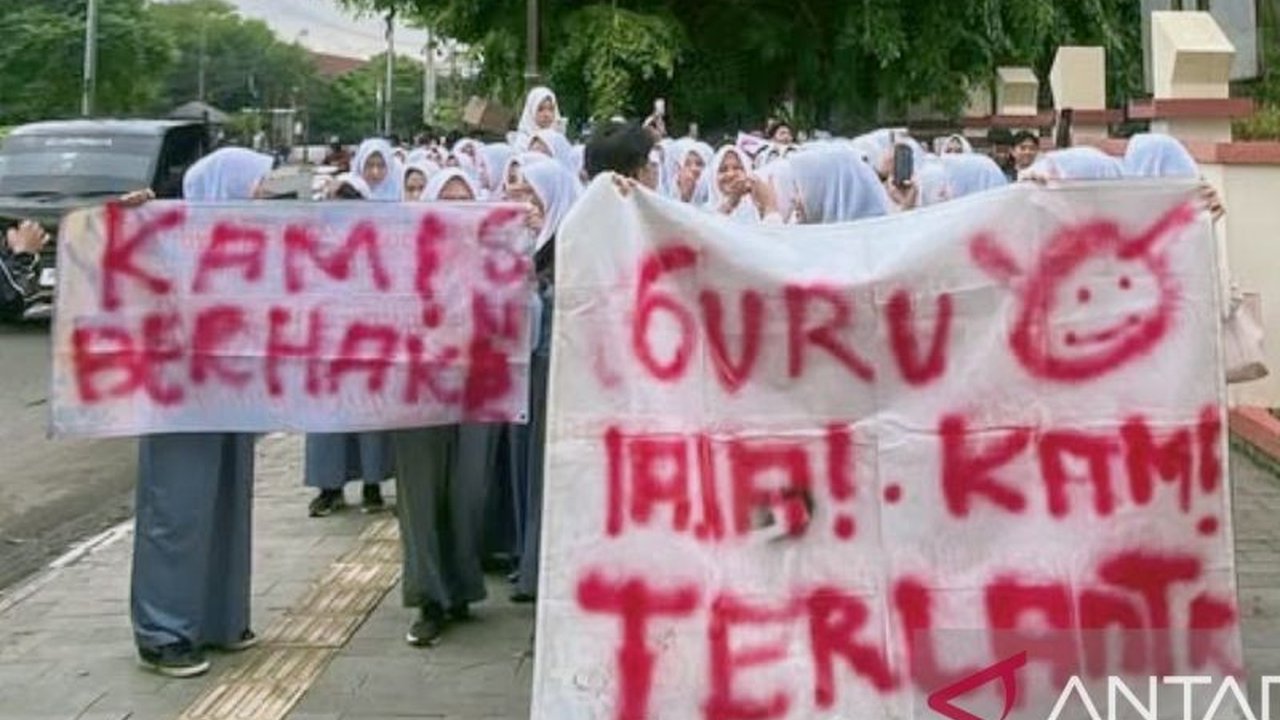 KAMI
BERHAK
GURU
LALAI. KAMI
TERLANTAR
ANTAR